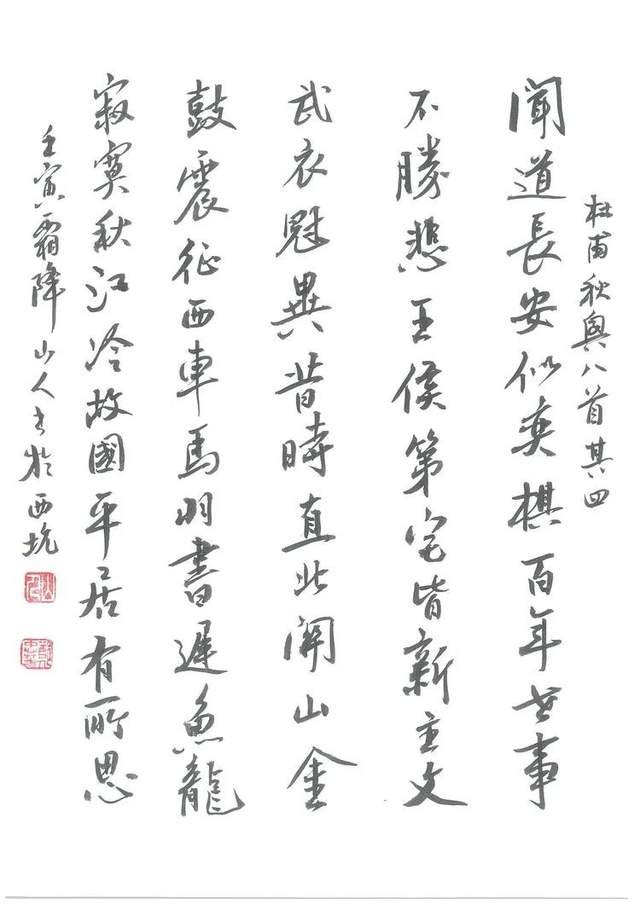 杜甫秋興八首其四
聞道長安似奕棋百年世事
不勝悲王侯第宅皆新主文
武衣冠異昔時直北關山金
鼓震征西車馬羽書遲魚龍
寂寞秋江冷故國平居有所思
壬寅霜降山人書於西坑